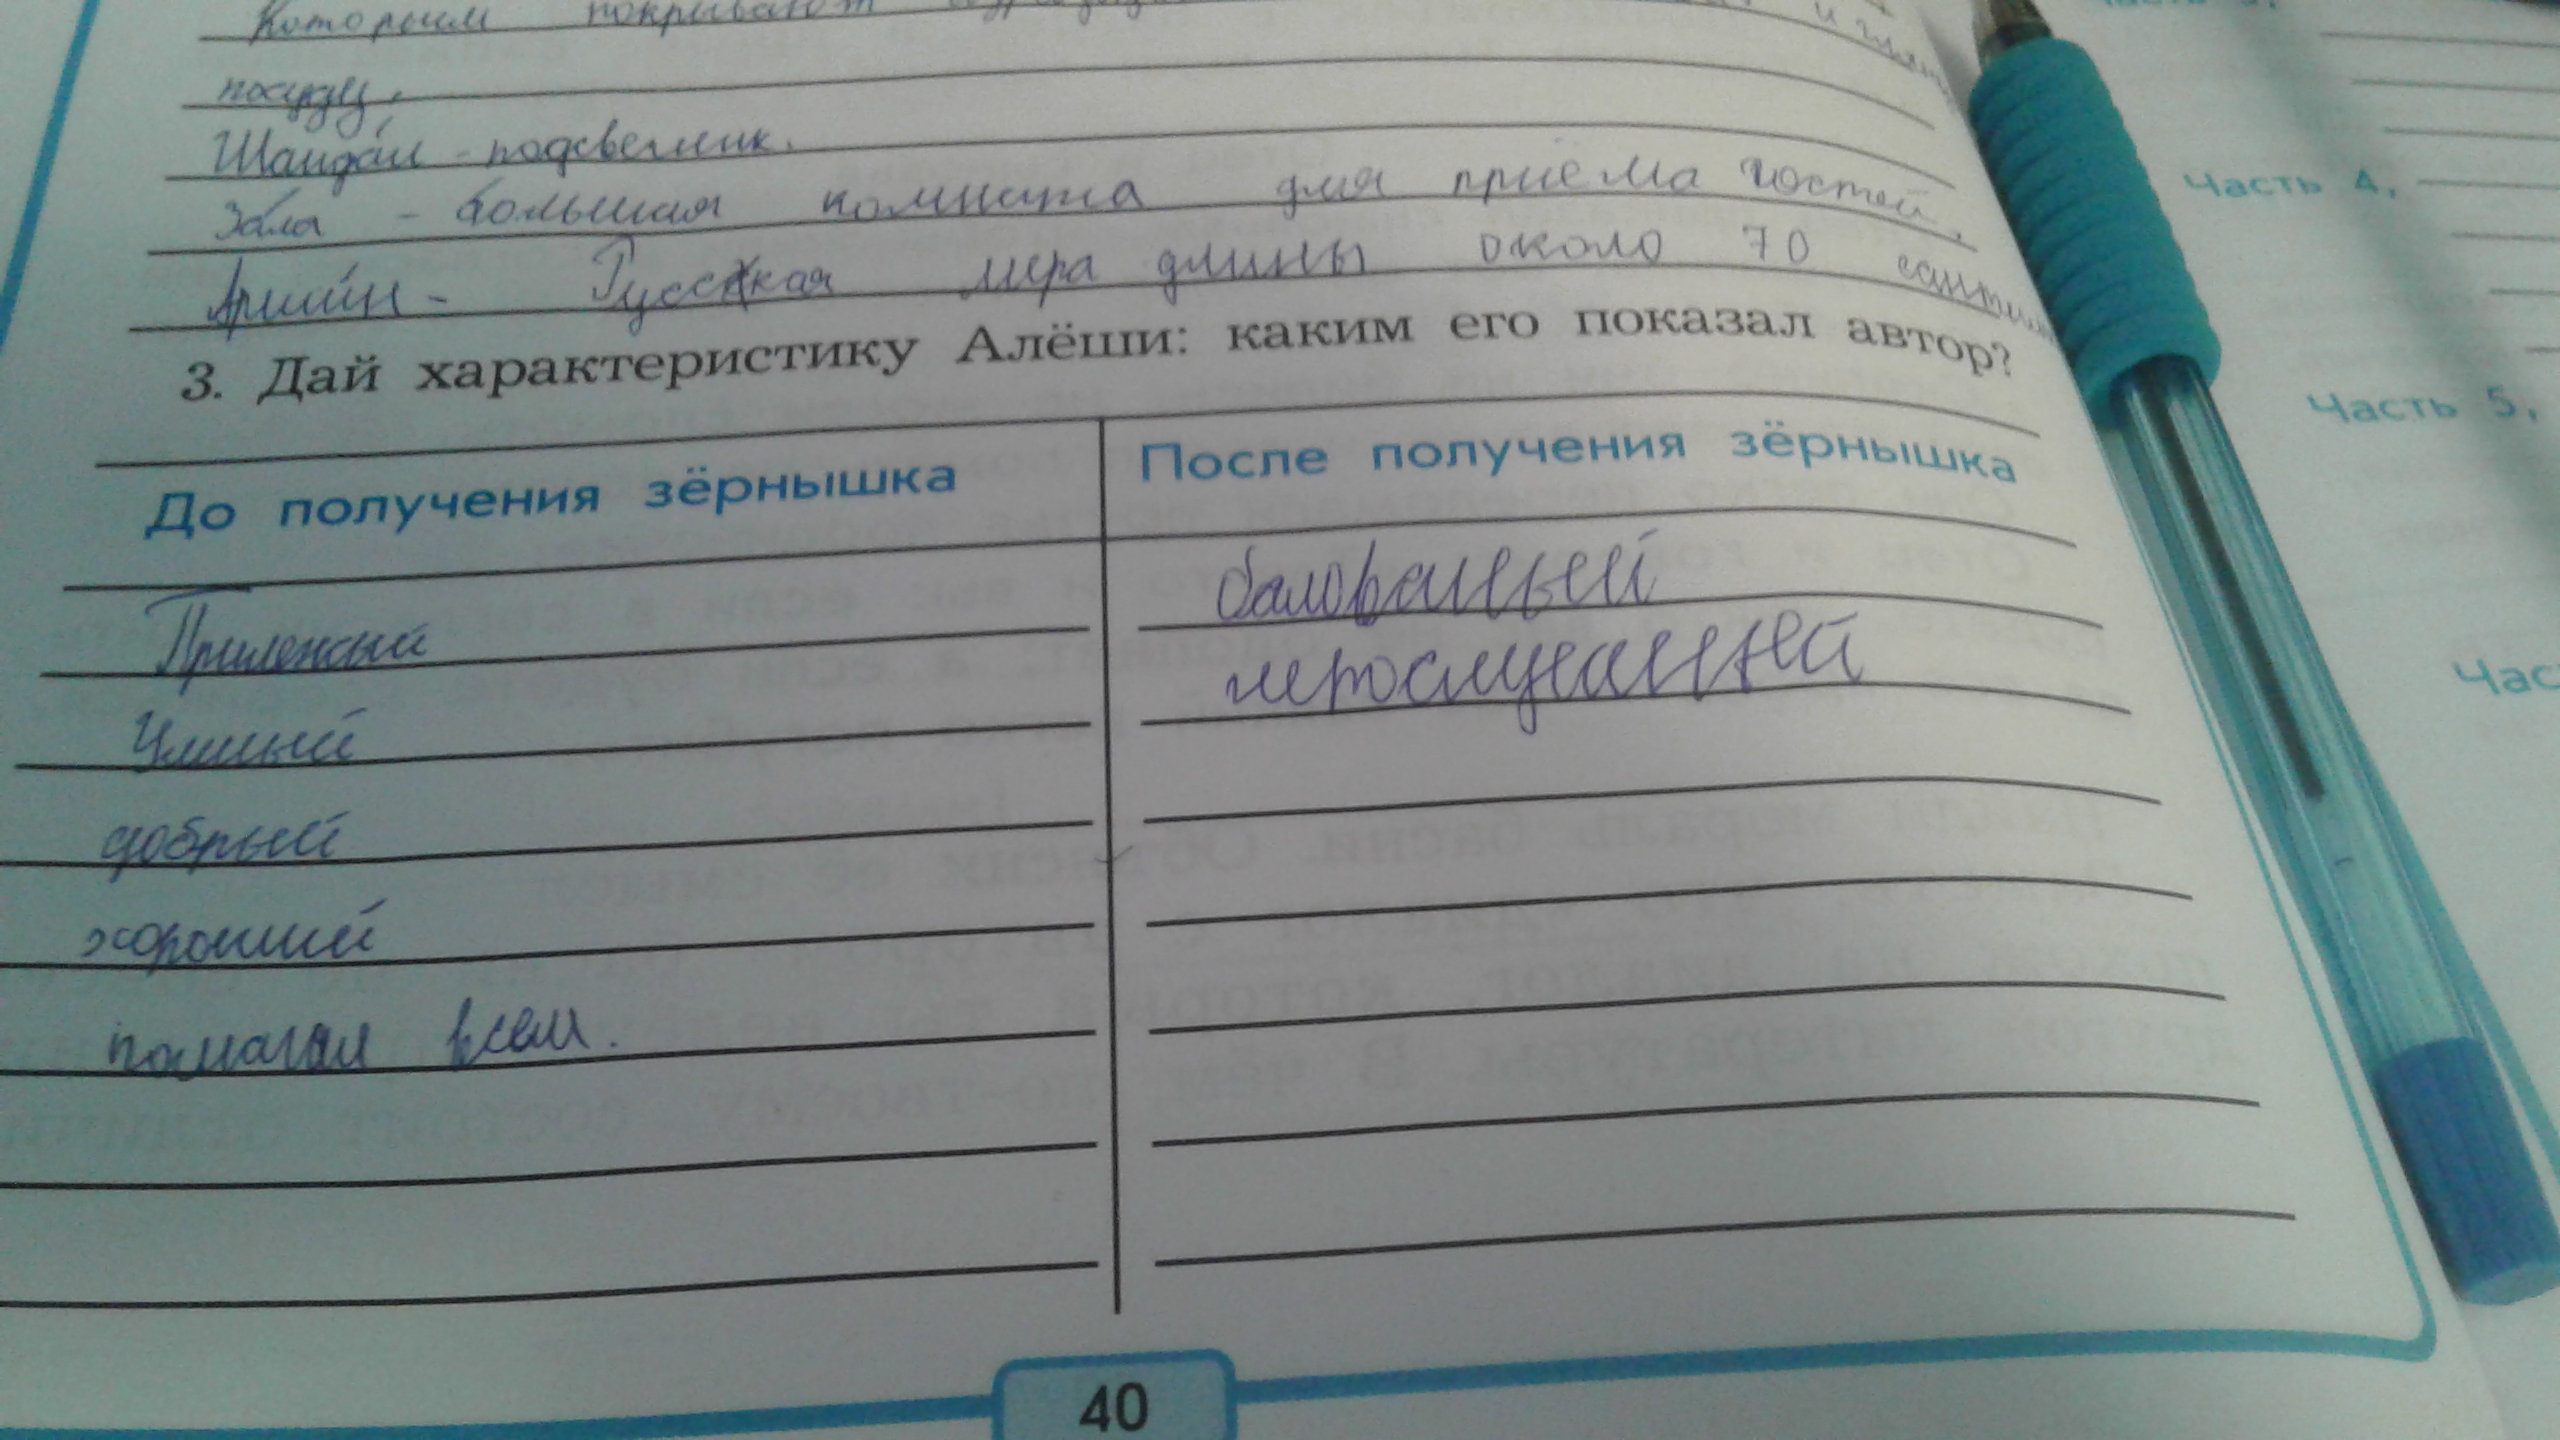 Которым покрывают
посуду.
Шандал - подсвечник.
Зала - большая комната для приёма гостей.
Аршин - Русская мера длины около 70 сантим
3. Дай характеристику Алёши: каким его показал автор?
До получения зёрнышка
После получения зёрнышка
Прилежный
Умный
добрый
хороший
помогал всем.
балованый
непослушный
40
Часть 4,
Часть 5,
Час